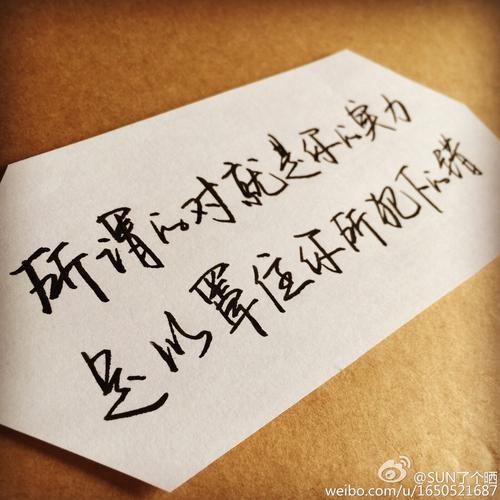 所谓的对就是你的实力
足以罩住你所犯下的错
@SUN了个晒
weibo.com/u/1650521687